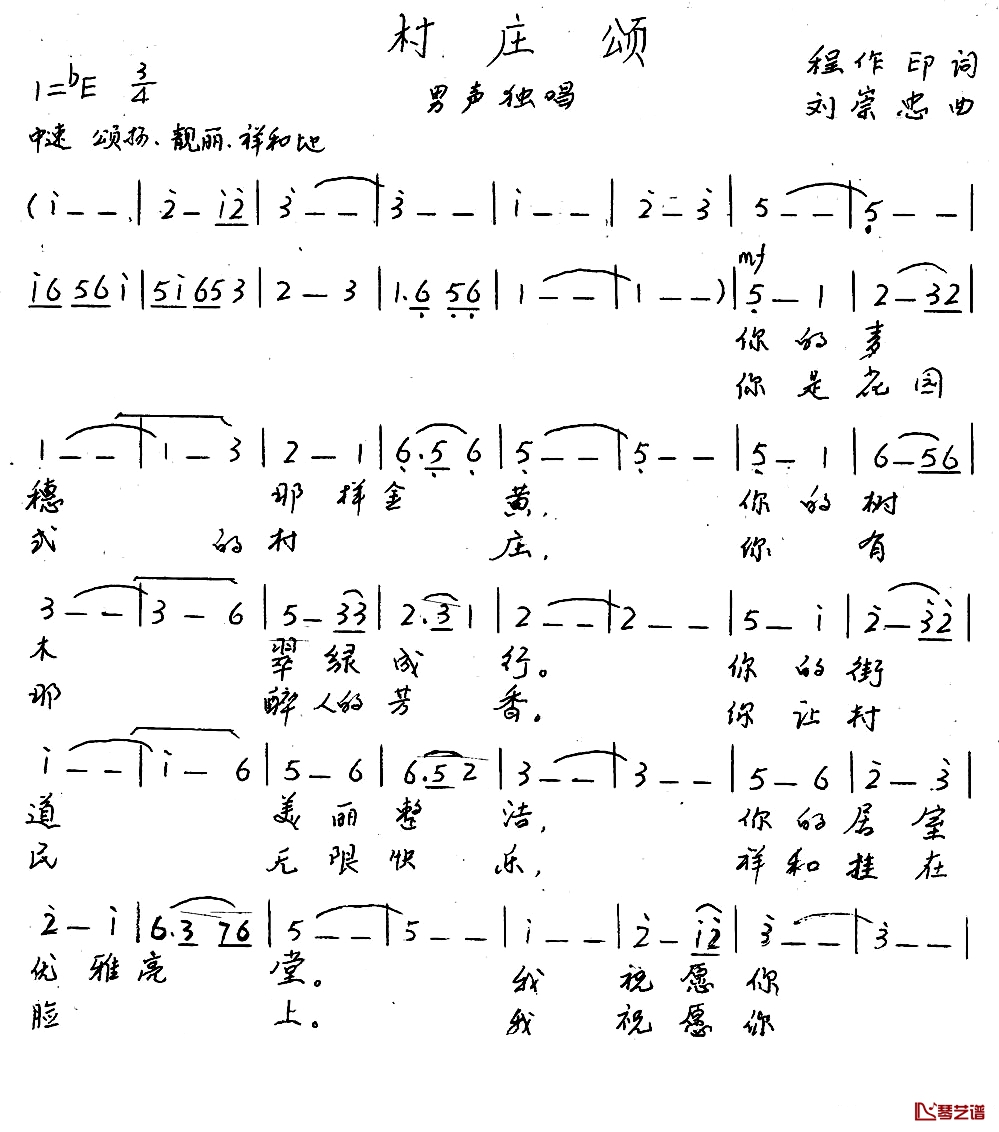 村庄颂
1=♭E 3/4 男声独唱 程作印词
刘崇忠曲
中速 颂扬、靓丽、祥和地
(i - - | 2̇ - i2̇ | 3̇ - - | 3̇ - - | i - - | 2̇ - 3̇ | 5 - - | 5̣ - - |
i6 56 i | 5i 65 3 | 2 - 3 | 1. 6̣ 5̣6̣ | 1 - - | 1 - - ) | mf 5̣ - 1 | 2 - 32 |
你的麦
你是花园
1 - - | 1 - 3 | 2 - 1 | 6̣. 5̣ 6̣ | 5̣ - - | 5̣ - - | 5̣ - 1 | 6 - 56 |
穗 那样金黄, 你的树
式的村庄, 你有
3 - - | 3 - 6 | 5 - 33 | 2. 3 1 | 2 - - | 2 - - | 5 - i | 2̇ - 3̇2̇ |
木 翠绿成行。 你的街
那 醉人的芳香。 你让村
i - - | i - 6 | 5 - 6 | 6. 5 2 | 3 - - | 3 - - | 5 - 6 | 2̇ - 3̇ |
道 美丽整洁, 你的居室
民 无限快乐, 祥和挂在
2̇ - i | 6. 3 76 | 5 - - | 5 - - | i - - | 2̇ - i2̇ | 3̇ - - | 3̇ - - |
优雅亮堂。 我祝愿你
脸上。 我祝愿你
琴艺谱